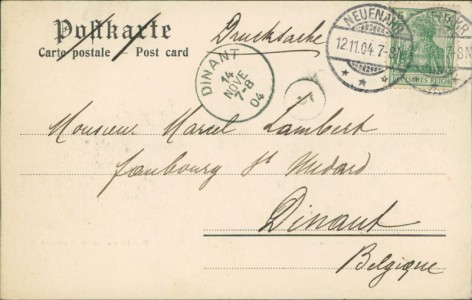 Postkarte Drucksache
Carte postale - Post card
NEUENAHR
12.11.04.7-8N
DEUTSCHES REICH
DINANT
14
NOVE
7-8
04
Monsieur Marcel Lambert
faubourg St Medard
Dinant
Belgique